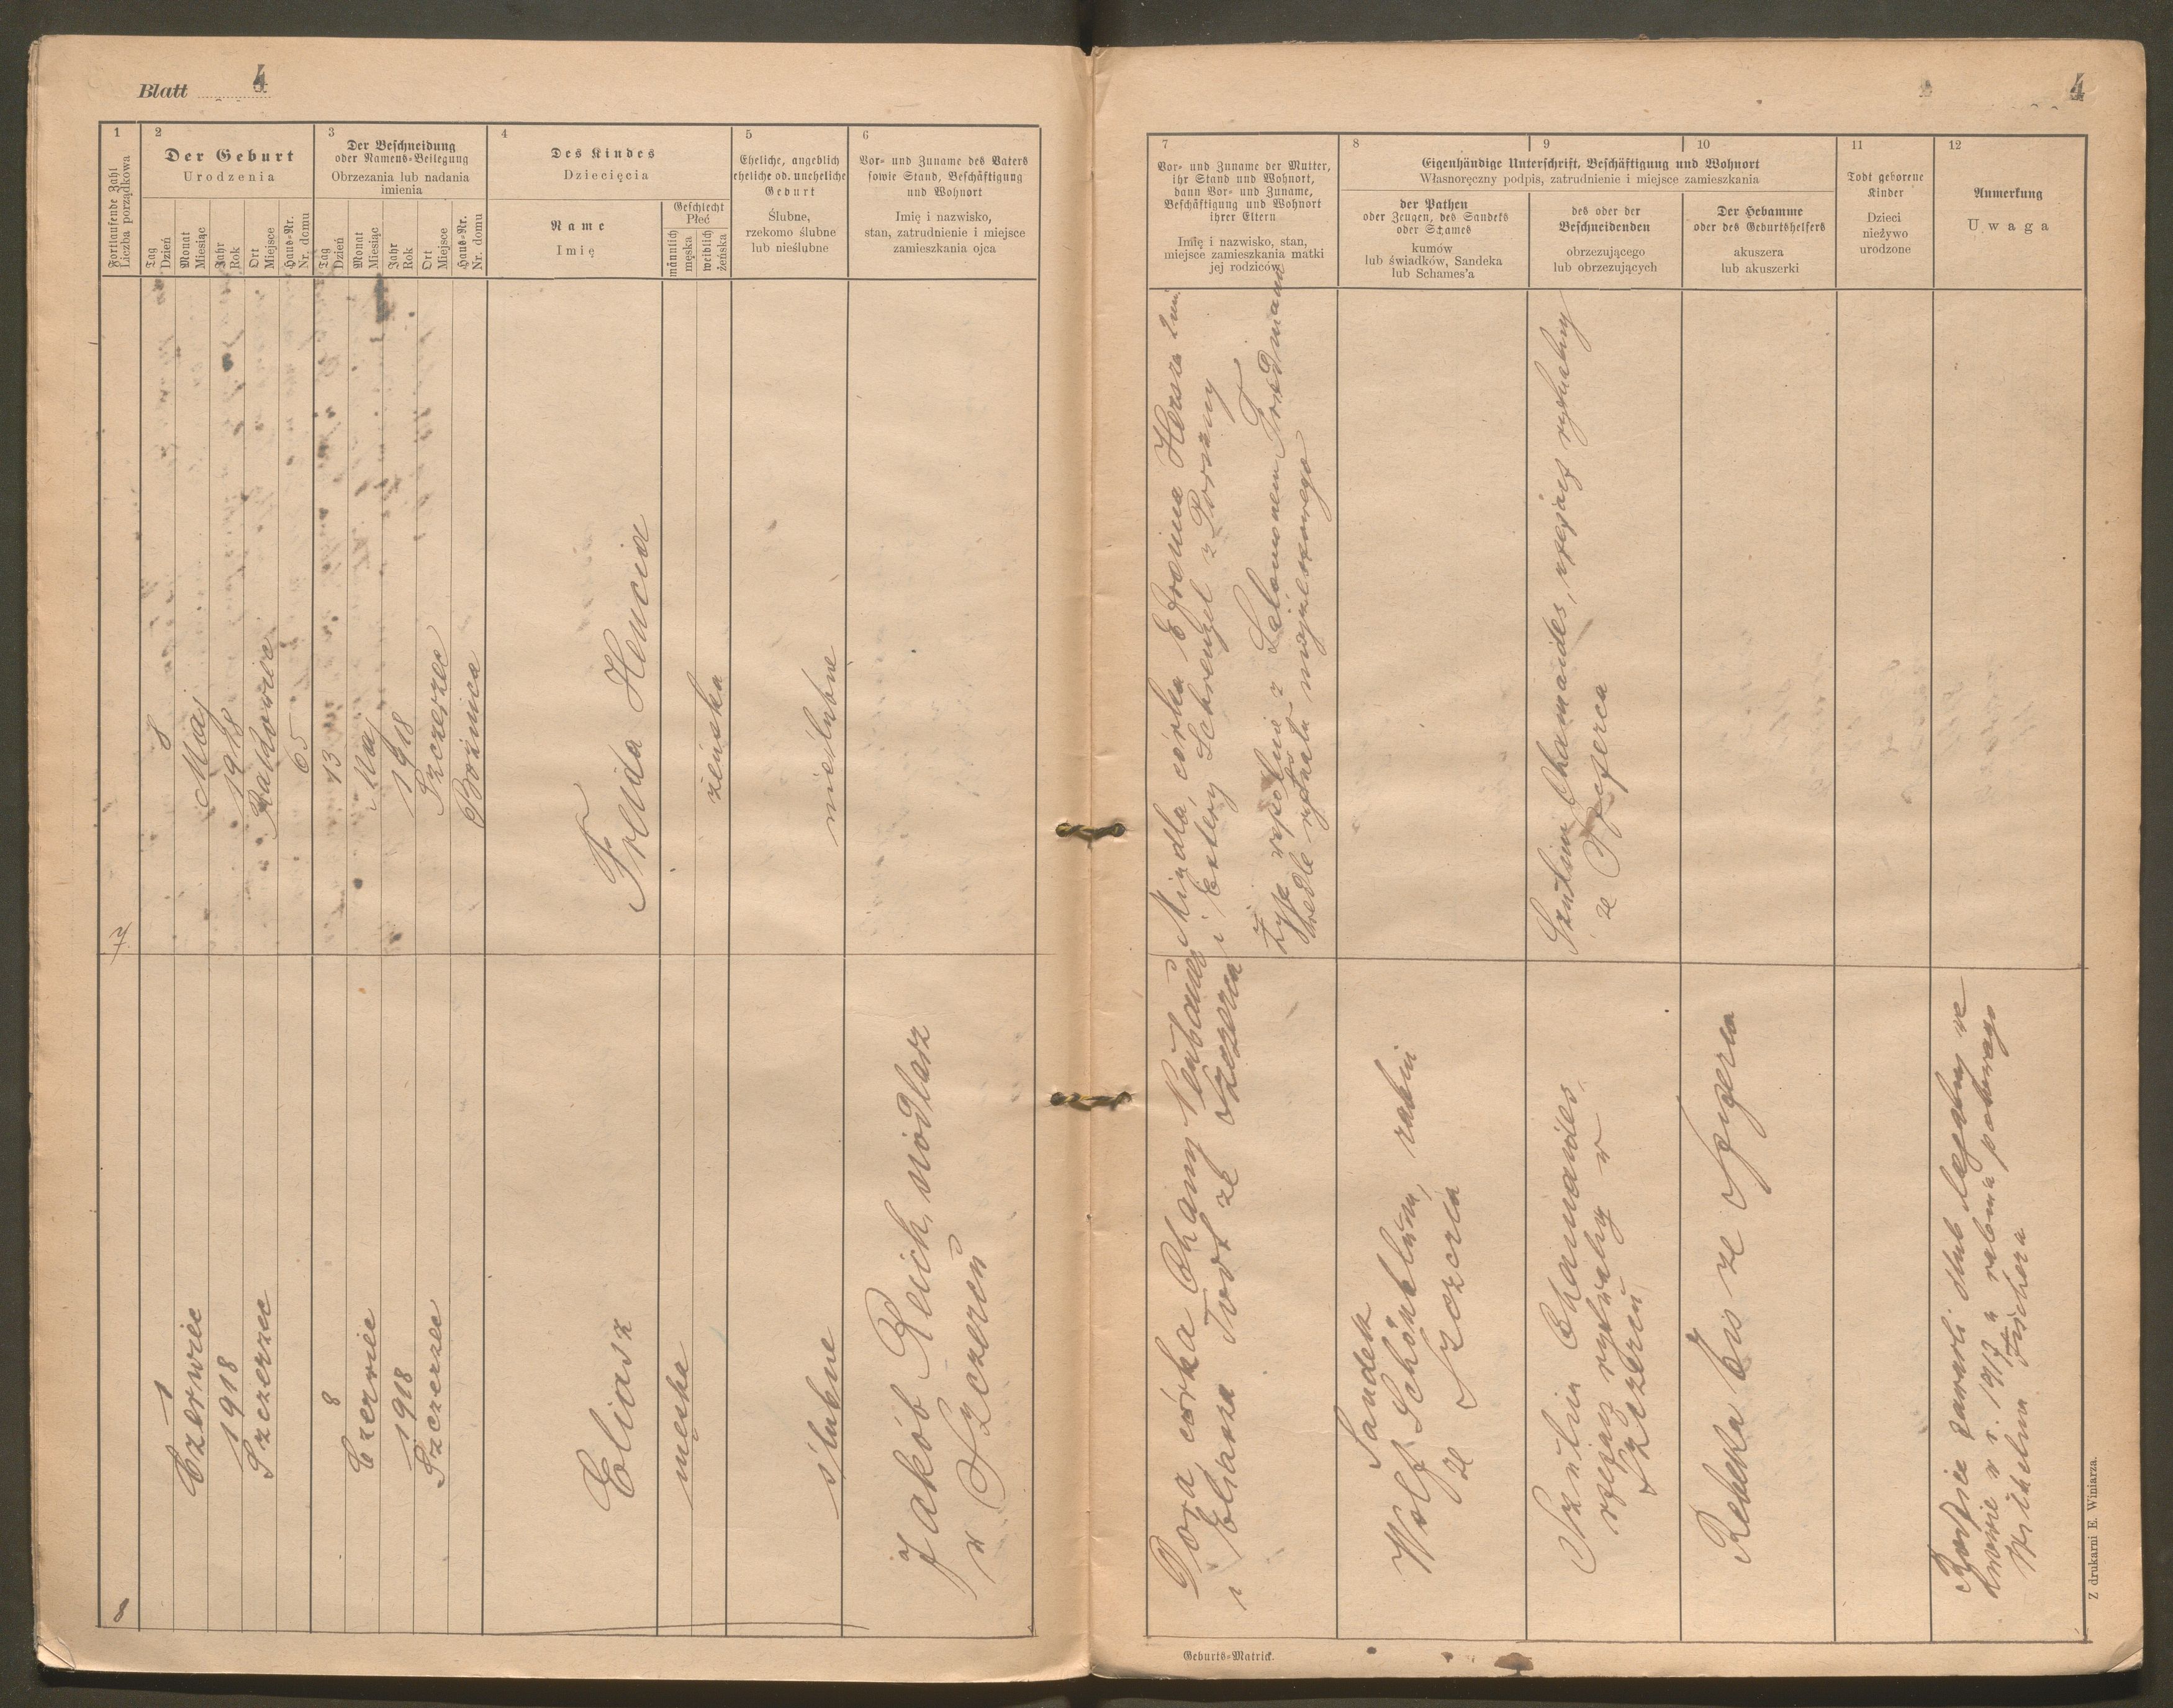 Blatt 4
4
1
Fortlaufende Zahl
Liczba porządkowa
2
Der Geburt
Urodzenia
Tag
Dzień
Monat
Miesiąc
Jahr
Rok
Ort
Miejsce
Haus-Nr.
Nr. domu
3
Der Beschneidung
oder Namens-Beilegung
Obrzezania lub nadania
imienia
Tag
Dzień
Monat
Miesiąc
Jahr
Rok
Ort
Miejsce
Haus-Nr.
Nr. domu
4
Des Kindes
Dziecięcia
Name
Imię
Geschlecht
Płeć
männlich
męska
weiblich
żeńska
5
Eheliche, angeblich
eheliche od. uneheliche
Geburt
Ślubne,
rzekomo ślubne
lub nieślubne
6
Vor- und Zuname des Vaters
sowie Stand, Beschäftigung
und Wohnort
Imię i nazwisko,
stan, zatrudnienie i miejsce
zamieszkania ojca
7
Vor- und Zuname der Mutter,
ihr Stand und Wohnort,
dann Vor- und Zuname,
Beschäftigung und Wohnort
ihrer Eltern
Imię i nazwisko, stan,
miejsce zamieszkania matki
jej rodziców
Eigenhändige Unterschrift, Beschäftigung und Wohnort
Własnoręczny podpis, zatrudnienie i miejsce zamieszkania
8
der Pathen
oder Zeugen, des Sandeks
oder Schames
kumów
lub świadków, Sandeka
lub Schames'a
9
des oder der
Beschneidenden
obrzezującego
lub obrzezujących
10
Der Hebamme
oder des Geburtshelfers
akuszera
lub akuszerki
11
Todt geborene
Kinder
Dzieci
nieżywo
urodzone
12
Anmerkung
Uwaga
7
8
Maj
1918
65
13
Maj
1918
Szczerzec
Bożnica
Frida Hencia
żeńska
nieślubne
Mindla, córka Efroima Hersza
i Estery Schrenzel z
Żyje wspólnie z Salomonem Friedmann
wedle rytuału mojżeszowego
Szulim Chamaides, rzezak rytualny
ze Szczerca
8
1
Czerwiec
1918
Szczerzec
8
Czerwiec
1918
Szczerzec
Eliasz
męska
ślubne
Jakób Reich, siodlarz
w Szczercu
Dora córka Chany
i Eliasza ze Szczerca
Sandek
Wolf Schönblum, rabin
ze Szczerca
Szulim Chamaides
rzezak rytualny w
Szczercu
Rebeka Eis ze Szczerca
Rodzice zawarli ślub legalny we
Lwowie w r. 1917 u rabina polowego
Wilhelma Fischera
Geburts-Matrick.
Z drukarni E. Winiarza.